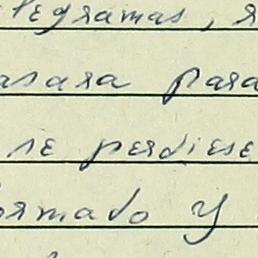 telegramas,
para
se perdiese
formado y